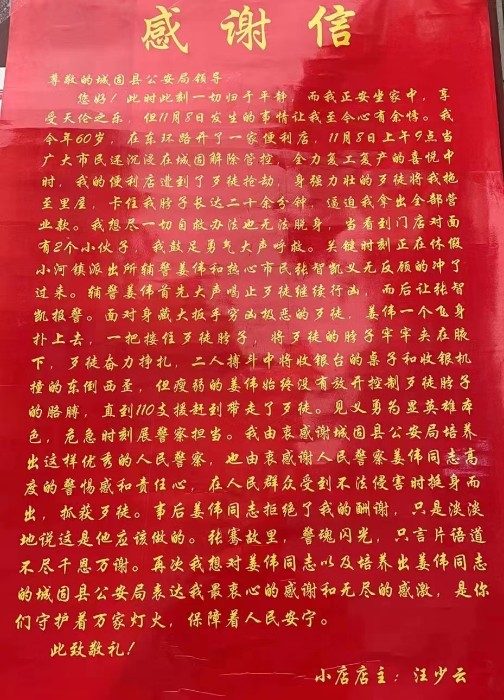 感谢信
尊敬的城固县公安局领导
您好！此时此刻一切归于平静，而我正安坐家中，享
受天伦之乐，但11月8日发生的事情让我至今心有余悸。我
今年60岁，在东环路开了一家便利店，11月8日上午9点当
广大市民还沉浸在城固解除管控，全力复工复产的喜悦中
时，我的便利店遭到了歹徒抢劫，身强力壮的歹徒将我拖
至里屋，卡住我脖子长达二十余分钟，逼迫我拿出全部营
业款。我想尽一切自救办法也无法脱身，当看到门店对面
有2个小伙子，我鼓足勇气大声呼救。关键时刻正在休假
小河镇派出所辅警姜伟和热心市民张智凯义无反顾的冲了
过来。辅警姜伟首先大声喝止歹徒继续行凶，而后让张智
凯报警。面对身藏大扳手穷凶极恶的歹徒，姜伟一个飞身
扑上去，一把搂住歹徒脖子，将歹徒的脖子牢牢夹在腋
下，歹徒奋力挣扎，二人搏斗中将收银台的桌子和收银机
撞的东倒西歪，但瘦弱的姜伟始终没有放开控制歹徒脖子
的胳膊，直到110支援赶到带走了歹徒。见义勇为显英雄本
色，危急时刻展警察担当。我由衷感谢城固县公安局培养
出这样优秀的人民警察，也由衷感谢人民警察姜伟同志高
度的警惕感和责任心，在人民群众受到不法侵害时挺身而
出，抓获歹徒。事后姜伟同志拒绝了我的酬谢，只是淡淡
地说这是他应该做的。张骞故里，警魂闪光，只言片语道
不尽千恩万谢。再次我想对姜伟同志以及培养出姜伟同志
的城固县公安局表达我最衷心的感谢和无尽的感激，是你
们守护着万家灯火，保障着人民安宁。
此致敬礼！
小店店主：汪少云